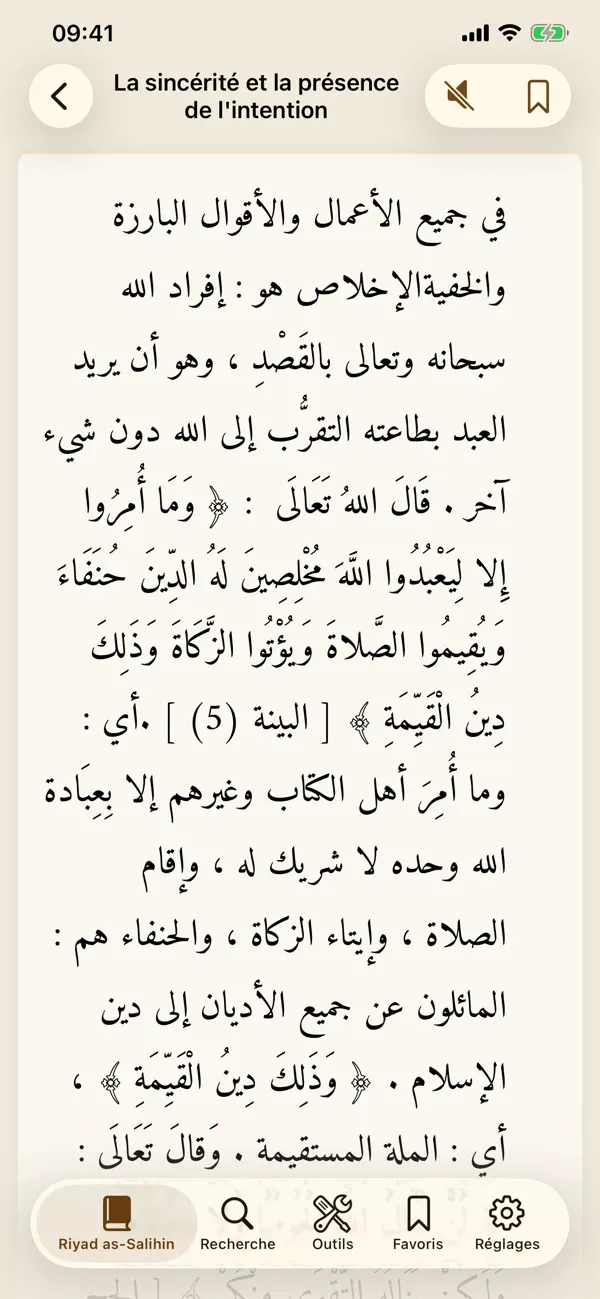 09:41
La sincérité et la présence
de l'intention
في جميع الأعمال والأقوال البارزة
والخفيةالإخلاص هو : إفراد الله
سبحانه وتعالى بالقَصْدِ ، وهو أن يريد
العبد بطاعته التقرُّب إلى الله دون شيء
آخر . قَالَ اللهُ تَعَالَى : ﴿ وَمَا أُمِرُوا
إِلا لِيَعْبُدُوا اللَّهَ مُخْلِصِينَ لَهُ الدِّينَ حُنَفَاءَ
وَيُقِيمُوا الصَّلاةَ وَيُؤْتُوا الزَّكَاةَ وَذَلِكَ
دِينُ الْقَيِّمَةِ ﴾ [ البينة (5) ] .أي :
وما أُمِرَ أهل الكتاب وغيرهم إلا بِعِبَادة
الله وحده لا شريك له ، وإقام
الصلاة ، وإيتاء الزكاة ، والحنفاء هم :
المائلون عن جميع الأديان إلى دين
الإسلام . ﴿ وَذَلِكَ دِينُ الْقَيِّمَةِ ﴾ ،
أي : الملة المستقيمة . وَقالَ تَعَالَى :
Riyad as-Salihin
Recherche
Outils
Favoris
Réglages